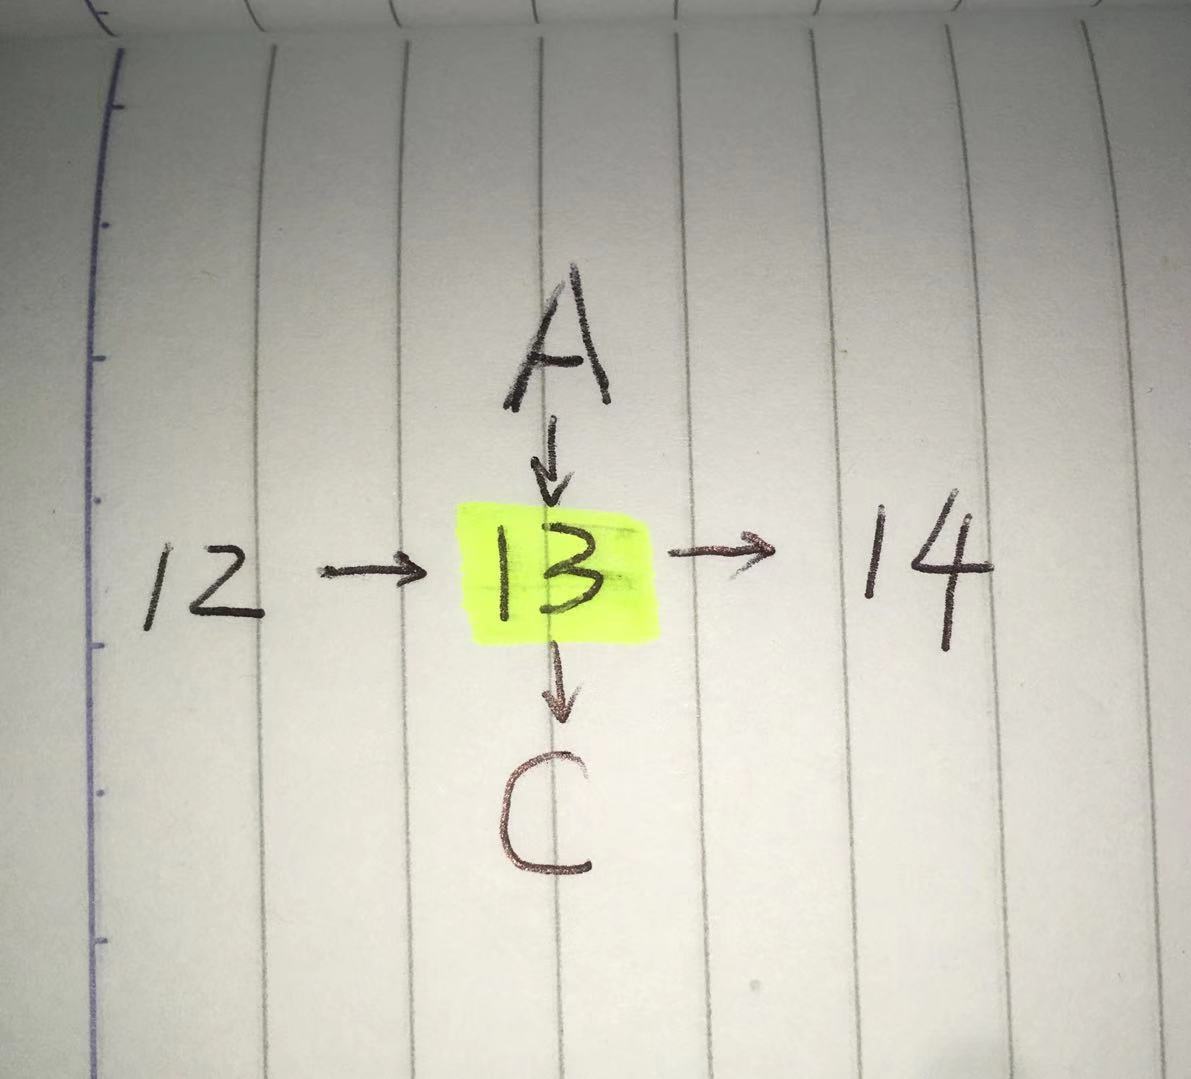 A
↓
12 → 13 → 14
↓
C